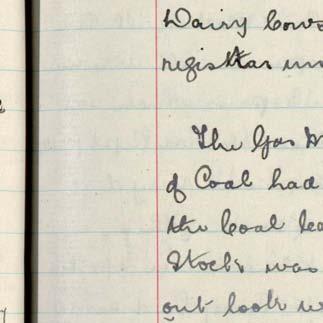 Dairy Cows
registrar un
The Gas M
of Coal had
the Coal lea
Stock was
out look w